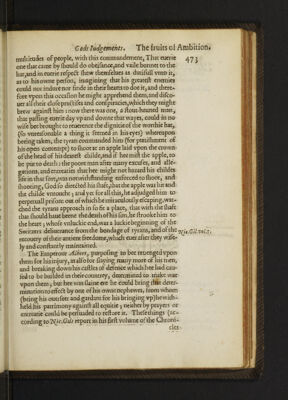 Gods Iudgements. The fruits of Ambition.
473
multitudes of people, with this commandement, That euerie
one that came by should do obeisance, and vaile bonnet to the
hat, and in euerie respect shew themselues as dutifull vnto it,
as to his owne person, imagining that his greatest enemies
could not indure nor finde in their hearts to doe it, and there-
fore vpon this occasion he might apprehend them, and disco-
uer all their close practises and conspiracies, which they might
brew against him: now there was one, a stout-hearted man,
that passing euerie day vp and downe that wayes, could in no
wise bee brought to reuerence the dignitie of the worthie hat,
(so vnreasonable a thing it seemed in his eyes) whereupon
beeing taken, the tyran commanded him (for punishment of
his open contempt) to shoot at an apple laid vpon the crown
of the head of his dearest childe, and if hee mist the apple, to
be put to death: the poore man after many excuses, and alle-
gations, and entreaties that hee might not hazard his childes
life in that sort, was notwithstanding enforced to shoot, and
shooting, God so directed his shaft, that the apple was hit and
the childe vntoucht; and yet for all this, he adiudged him to
perpetuall prison: out of which he miraculously escaping, wat-
ched the tyrans approch in so fit a place, that with the shaft
that should haue beene the death of his son, he strooke him to
the heart; whose vnluckie end, was a luckie beginning of the
Switzers deliuerance from the bondage of tyrans, and of the
recouerie of their antient freedome, which euer after they wise-
ly and constantly maintained.
Nic.Gil.vol.2.
The Emperour Albert, purposing to bee reuenged vpon
them for his iniury, as also for slaying many more of his men,
and breaking down his castles of defence which hee had cau-
sed to be builded in their countrey, determined to make war
vpon them; but hee was slaine ere he could bring this deter-
mination to effect by one of his owne nephewes, from whom
(being his ouerseer and gardant for his bringing vp) he with-
held his patrimony against all equitie; neither by prayers or
entreatie could be persuaded to restore it. These things (ac-
cording to Nic. Gils report in his first volume of the Chroni-
cles